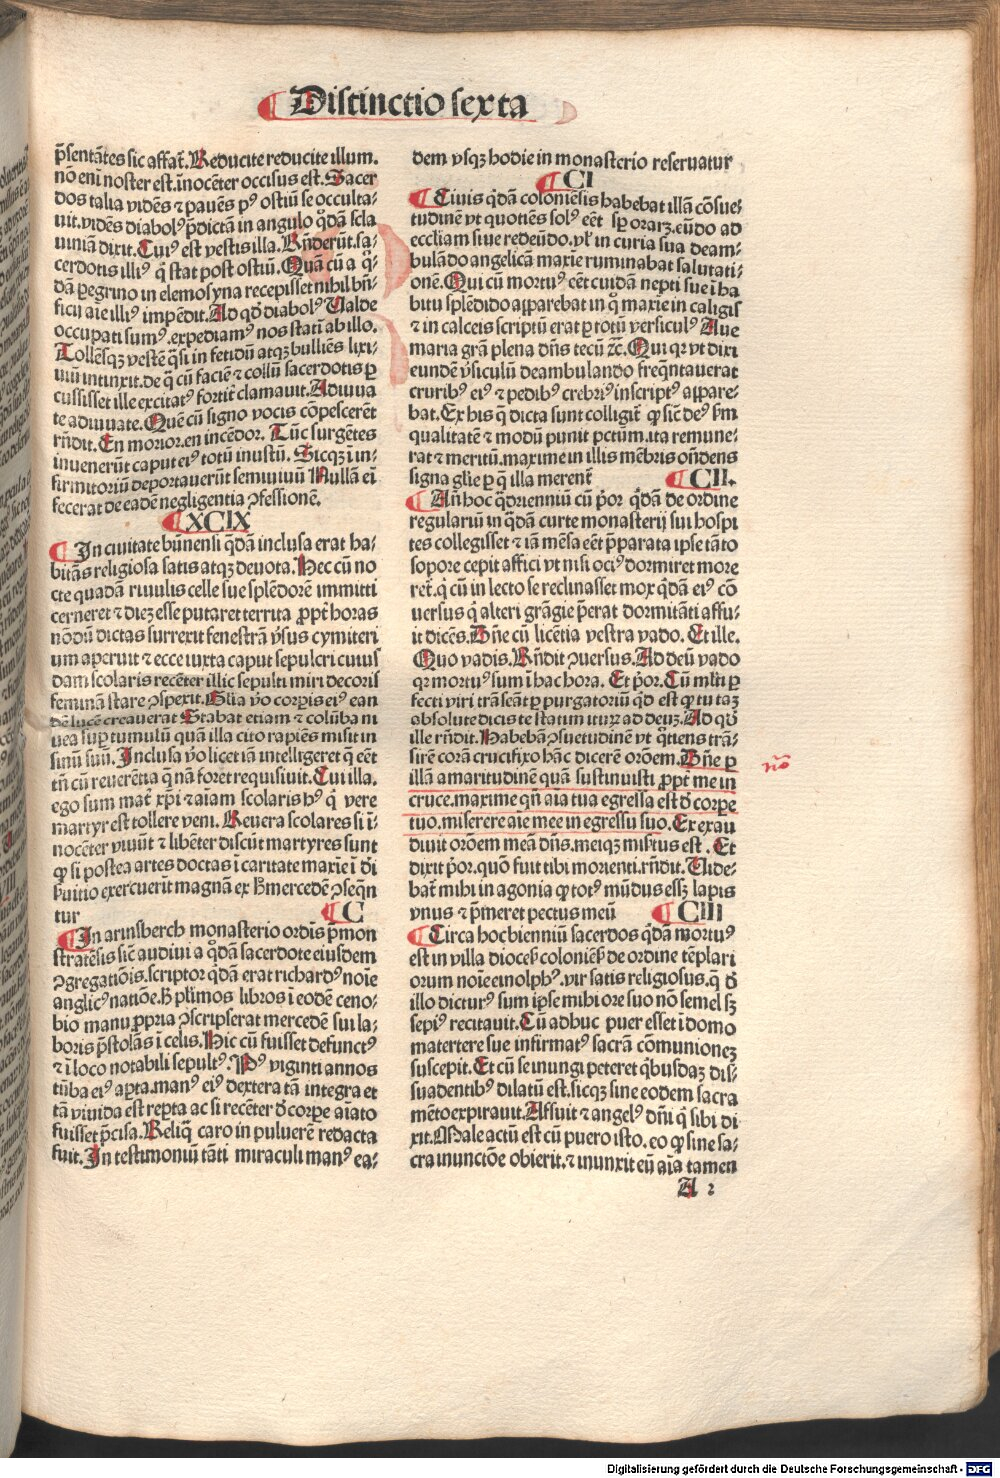 Distinctio sexta
p̄sentātes sic affat̄. Reducite reducite illum.
nō eni noster est. īnocēter occisus est. Sacer
dos talia vidēs ⁊ pauēs pꝰ ostiū se occulta-
uit. vidēs diabolꝰ p̄dictā in angulo q̄dā scla
uiniā dixit. Cuiꝰ est vestis illa. Rn̄derūt. sa-
cerdotis illiꝰ q̇ stat post ostiū. Quā cū a q̇-
dā ꝑegrino in elemosyna recepisset nihil bn̄-
ficij aīe illiꝰ impēdit. Ad qd̄ diabolꝰ Ualde
occupati sumꝰ. expediamꝰ nos stati ab illo.
Tollēsqꝫ vestē q̄si in fetidū atqꝫ bulliēs lixi-
uiū intinxit. de q̇ cū faciē ⁊ collū sacerdotis ꝑ
cussisset ille excitatꝰ fortit̄ clamauit. Adiuua
te adiuuate. Quē cū signo vocis cōpescerēt
rn̄dit. En morior. en incēdor. Tūc surgētes
inuenerūt caput eiꝰ totū inustū. Sicqꝫ ī in-
firmitoriū deportauerūt semiuiuū Nullā ei
fecerat de eadē negligentia ꝯfessionē.
XCIX
In ciuitate būnensi q̄dā inclusa erat ha-
bitās religiosa satis atqꝫ deuota. Hec cū no
cte quadā riuulis celle sue splēdorē immitti
cerneret ⁊ dieꝫ esse putaret territa ꝓpt̄ horas
nōdū dictas surrexit fenestrā ṽsus cymiteri
um aperuit ⁊ ecce iuxta caput sepulcri cuius
dam scolaris recēter illic sepulti miri decoris
feminā stare ꝯspexit. Gl̄ia v̄o corꝑis eiꝰ ean
dē lucē creauerat Stabat etiam ⁊ colūba ni
uea suꝑ tumulū quā illa cito rapiēs misit in
sinū suū. Inclusa v̄o licet iā intelligeret q̄ eēt
tn̄ cū reuerētia q̄ nā foret requisiuit. Cui illa.
ego sum mat̄ xp̄i ⁊ aīam scolaris hꝰ q̇ vere
martyr est tollere veni. Reuera scolares si ī-
nocēter viuūt ⁊ libēter discūt martyres sunt
ꝙ si postea artes doctas ī caritate maxīe ī dī
ẜuitio exercuerīt magnā ex h̄ mercedē ꝯseqn̄
tur
C
In arinsberch monasterio ordīs p̄mon
stratēsis sic̄ audiui a q̄dā sacerdote eiusdem
ꝯgregatiōis. scriptor q̄dā erat richardꝰ noīe
anglicꝰ natiōe. h̄ pl̄imos libros ī eodē ceno-
bio manu ꝓpria ꝯscripserat mercedē sui la-
boris p̄stolās ī celis. Hic cū fuisset defunctꝰ
⁊ ī loco notabili sepultꝰ. Pꝰ viginti annos
tūba eiꝰ aꝑta. manꝰ eiꝰ dextera tā integra et
tā viuida est reꝑta ac si recēter d̄ corpe aīato
fuisset p̄cisa. Reliq̄ caro in puluerē redacta
fuit. In testimoniū tāti miraculi manꝰ ea-
dem vsqꝫ hodie in monasterio reseruatur
CI
Ciuis q̄dā coloniēsis habebat illā cōsue-
tudinē vt quotiēs solꝰ eēt sꝑ oraꝫ. eūdo ad
eccl̄iam siue redeūdo. vl̓ in curia sua deam-
bulādo angelicā maxīe ruminabat salutati-
onē. Qui cū mortuꝰ eēt cuidā nepti sue ī ha
bitu splēdido apparebat in q̇ maxīe in caligis
⁊ in calceis scriptū erat ꝑ totū versiculꝰ Aue
maria grā plena dn̄s tecū ⁊c̄. Qui qꝛ vt dixi
eundē ṽsiculū deambulando freq̄ntauerat
cruribꝰ eiꝰ ⁊ pedibꝰ crebriꝰ inscriptꝰ appare-
bat. Ex his q̄ dicta sunt colligit̄ ꝙ sic̄ deꝰ ẜm
qualitatē ⁊ modū punit pctm̄. ita remune-
rat ⁊ meritū. maxime in illis mēbris on̄dens
signa gl̄ie ꝑ q̄ illa merent̄
CII.
An̄ hoc q̇driennīū cū p̄or q̄dā de ordine
regulariū in q̄dā curte monasterij sui hospi
tes collegisset ⁊ iā mēsa eēt p̄parata ipse tāto
sopore cepit affici vt nisi ociꝰ dormiret more
ret̄. q̇ cū in lecto se reclinasset mox q̄dā eiꝰ cō
uersus q̇ alteri grāgie p̄erat dormitāti affu-
it dicēs. Dn̄e cū licētia vestra vado. Et ille.
Quo vadis. Rn̄dit ꝯuersus. Ad deū vado
qꝛ mortuꝰ sum ī hac hora. Et p̄or. Cū ml̄ti ꝑ
fecti viri trāseāt ꝑ purgatoriū qd̄ est ꝙ tu taꝫ
absolute dicis te statum iturꝫ ad deuꝫ. Ad qd̄
ille rn̄dit. Habebā ꝯsuetudinē vt q̇tiens trā-
sirē corā crucifixo hāc dicerē oroēm. Dn̄e ꝑ
illā amaritudinē quā sustinuisti ꝓpt̄ me in
cruce. maxime qn̄ aīa tua egressa est d̄ corpe
tuo. miserere aīe mee in egressu suo. Ex exau
diuit oroēm meā dn̄s. meiqꝫ misꝰtus est. Et
dixit p̄or. quō fuit tibi morienti. rn̄dit. Uide-
bat̄ mihi in agonia ꝙ totꝰ mūdus essꝫ lapis
vnus ⁊ p̄meret pectus meū
CIII
Circa hoc bienniū sacerdos q̄dā mortuꝰ
est in villa diocesꝭ coloniēsꝭ de ordine tēplari
orum noīe einolphꝰ. vir satis religiosus. q̇ d̄
illo dicturꝰ sum ip̄se mihi ore suo nō semel sꝫ
sepiꝰ recitauit. Cū adhuc puer esset ī domo
matertere sue infirmatꝰ sacrā cōmunioneꝫ
suscepit. Et cū se inungi peteret q̇busdaꝫ dis-
suadentibꝰ dilatū est. sicqꝫ sine eodem sacra
mēto expirauit. Affuit ⁊ angelꝰ dn̄i q̇ sibi di
xit. Male actū est cū puero isto. eo ꝙ sine sa-
cra inunctōe obierit. ⁊ inunxit eū aīa tamen
A 2
nō
Digitalisierung gefördert durch die Deutsche Forschungsgemeinschaft - DFG